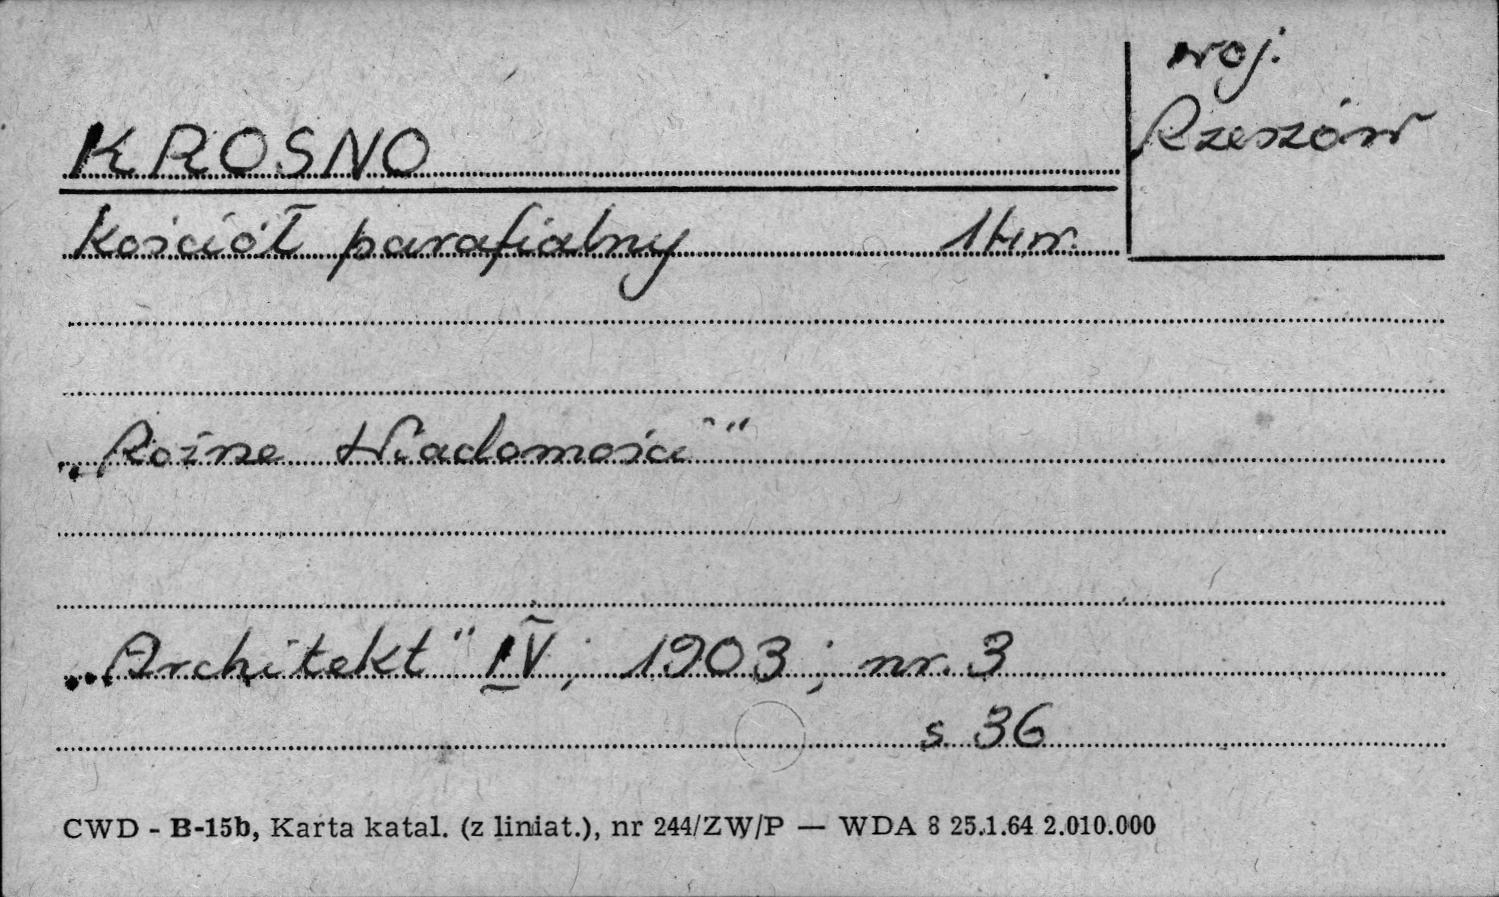 woj.
Rzeszów
KROSNO
Kościół parafialny
„Rożne Wiadomości"
„Architekt" IV; 1903; nr. 3
s. 36
CWD - B-15b, Karta katal. (z liniat.), nr 244/ZW/P — WDA 8 25.1.64 2.010.000